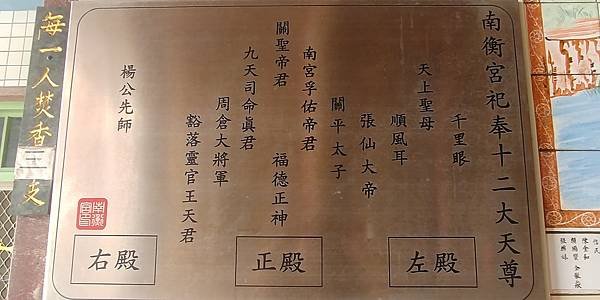 南衡宮祀奉十二大天尊
千里眼
天上聖母
順風耳
張仙大帝
關平太子
南宮孚佑帝君
關聖帝君
福德正神
九天司命真君
周倉大將軍
豁落靈官王天君
楊公先師
左殿
正殿
右殿
南衡宮印
每一人焚香三支
信民
陳金和